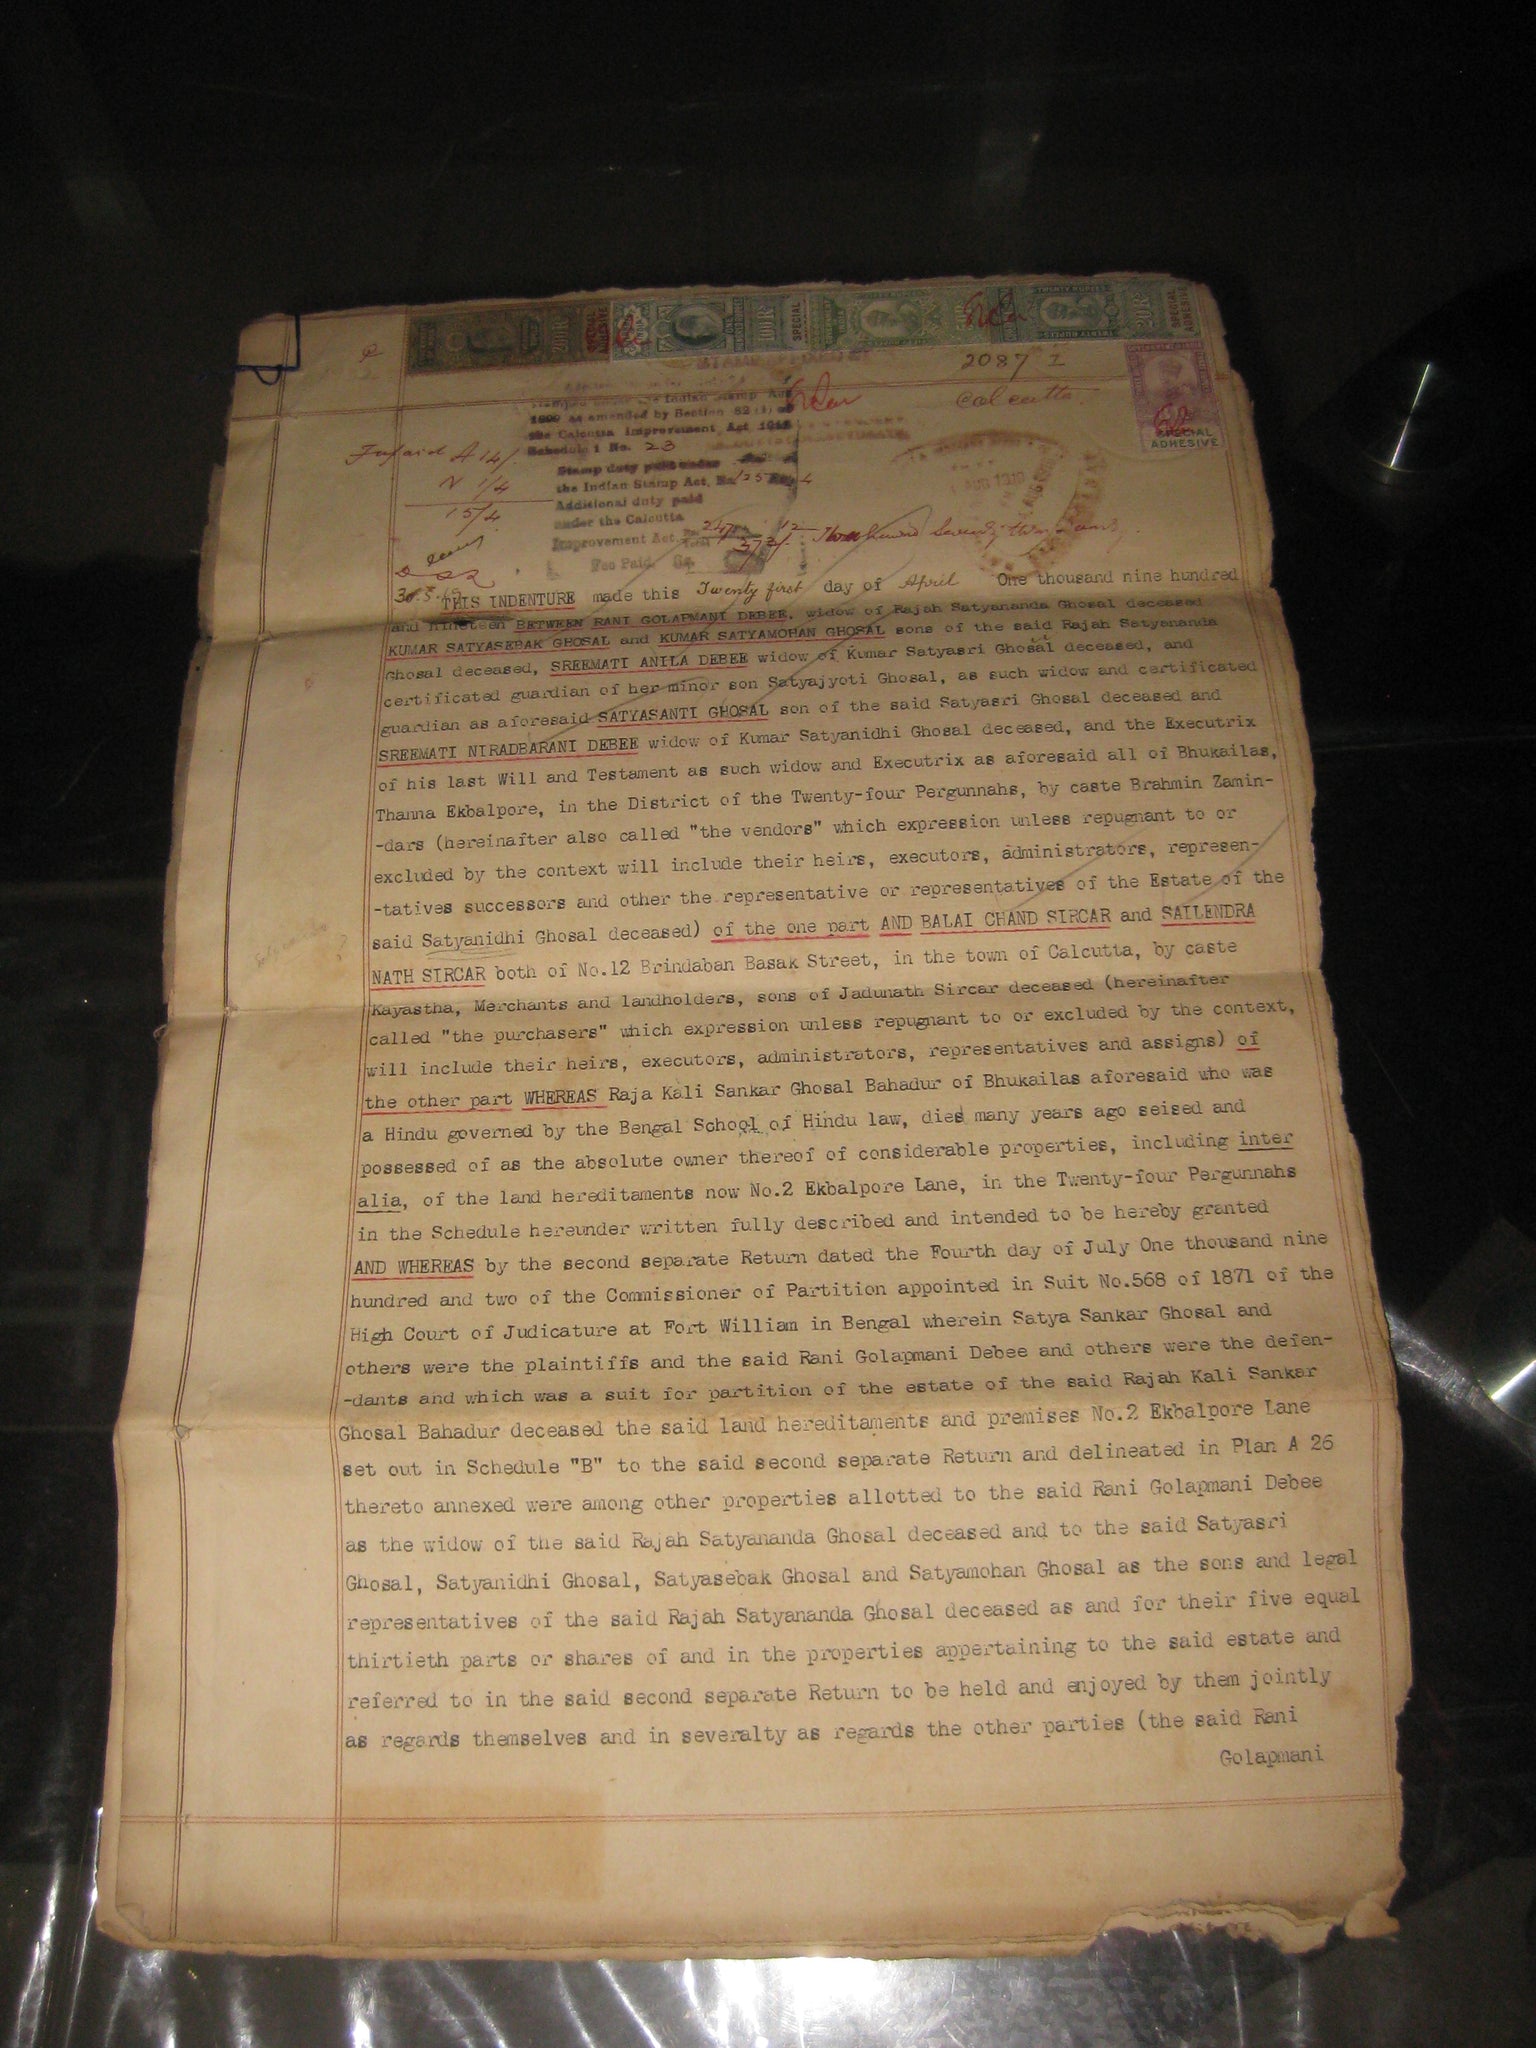 TWENTY RUPEES
20 RS
SPECIAL ADHESIVE
100 RS
SPECIAL
TWENTY RUPEES
20 RS
SPECIAL ADHESIVE
2087 I
Calcutta
SPECIAL
ADHESIVE
Stamped under the Indian Stamp Act
1899 as amended by Section 82 (1) of
the Calcutta Improvement Act 1911
Schedule 1 No. 23
Stamp duty paid under
the Indian Stamp Act. Rs 125
Additional duty paid
under the Calcutta
Improvement Act.
Fee Paid
A 14/
N 1/4
15/4
THIS INDENTURE made this Twenty first day of April One thousand nine hundred
and nineteen BETWEEN RANI GOLAPMANI DEBEE, widow of Rajah Satyananda Ghosal deceased
KUMAR SATYASEBAK GHOSAL and KUMAR SATYAMOHAN GHOSAL sons of the said Rajah Satyananda
Ghosal deceased, SREEMATI ANILA DEBEE widow of Kumar Satyasri Ghosal deceased, and
certificated guardian of her minor son Satyajyoti Ghosal, as such widow and certificated
guardian as aforesaid SATYASANTI GHOSAL son of the said Satyasri Ghosal deceased and
SREEMATI NIRADBARANI DEBEE widow of Kumar Satyanidhi Ghosal deceased, and the Executrix
of his last Will and Testament as such widow and Executrix as aforesaid all of Bhukailas,
Thanna Ekbalpore, in the District of the Twenty-four Pergunnahs, by caste Brahmin Zamin-
-dars (hereinafter also called "the vendors" which expression unless repugnant to or
excluded by the context will include their heirs, executors, administrators, represen-
-tatives successors and other the representative or representatives of the Estate of the
said Satyanidhi Ghosal deceased) of the one part AND BALAI CHAND SIRCAR and SAILENDRA
NATH SIRCAR both of No.12 Brindaban Basak Street, in the town of Calcutta, by caste
Kayastha, Merchants and landholders, sons of Jadunath Sircar deceased (hereinafter
called "the purchasers" which expression unless repugnant to or excluded by the context,
will include their heirs, executors, administrators, representatives and assigns) of
the other part WHEREAS Raja Kali Sankar Ghosal Bahadur of Bhukailas aforesaid who was
a Hindu governed by the Bengal School of Hindu law, died many years ago seised and
possessed of as the absolute owner thereof of considerable properties, including inter
alia, of the land hereditaments now No.2 Ekbalpore Lane, in the Twenty-four Pergunnahs
in the Schedule hereunder written fully described and intended to be hereby granted
AND WHEREAS by the second separate Return dated the Fourth day of July One thousand nine
hundred and two of the Commissioner of Partition appointed in Suit No.568 of 1871 of the
High Court of Judicature at Fort William in Bengal wherein Satya Sankar Ghosal and
others were the plaintiffs and the said Rani Golapmani Debee and others were the defen-
-dants and which was a suit for partition of the estate of the said Rajah Kali Sankar
Ghosal Bahadur deceased the said land hereditaments and premises No.2 Ekbalpore Lane
set out in Schedule "B" to the said second separate Return and delineated in Plan A 26
thereto annexed were among other properties allotted to the said Rani Golapmani Debee
as the widow of the said Rajah Satyananda Ghosal deceased and to the said Satyasri
Ghosal, Satyanidhi Ghosal, Satyasebak Ghosal and Satyamohan Ghosal as the sons and legal
representatives of the said Rajah Satyananda Ghosal deceased as and for their five equal
thirtieth parts or shares of and in the properties appertaining to the said estate and
referred to in the said second separate Return to be held and enjoyed by them jointly
as regards themselves and in severalty as regards the other parties (the said Rani
Golapmani